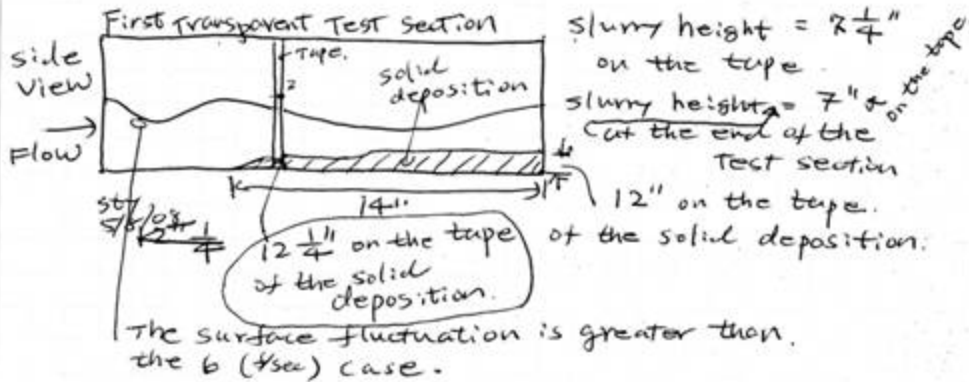 First Transparent Test Section
side
view
Flow
Tape.
2
solid
deposition
14"
slurry height = 7 1/4"
on the tape
slurry height = 7" on the tape
(at the end of the
Test section
12" on the tape.
of the solid deposition.
12 1/4" on the tape
of the solid
deposition.
The surface fluctuation is greater than
the 6 (f/sec) case.